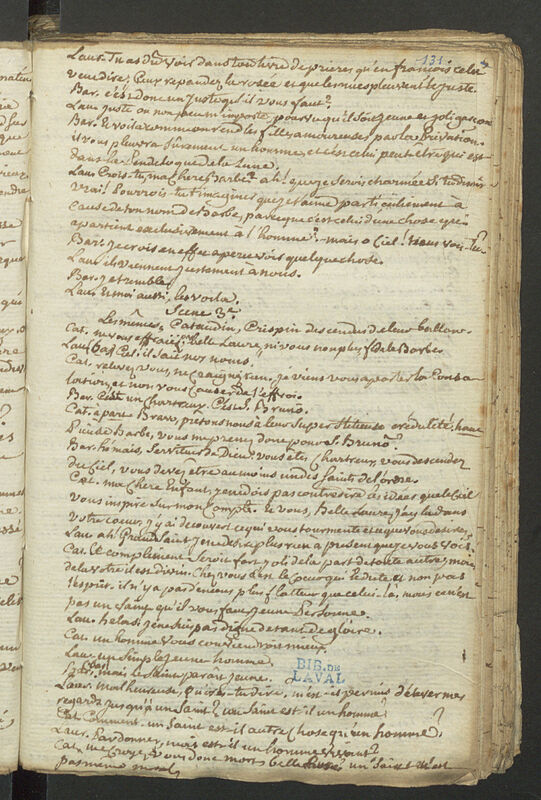 131
Laur. Tu as dû voir dans ton livre de prieres qu'en françois cela
veut dire, Cieux repandez la rosée et que les nues pleuvent le juste.
Bar. c'est donc un juste qu'il vous faut?
Laur. juste ou non peu m'importe, pourvu qu'il soit jeune et joli garçon
Bar. Et voila comme on rend les filles amoureuses par la privation.
il vous pleuvra surement un homme, et c'est celui peut être qui est
dans la Lune.
Laur. Crois-tu, ma chere Barbe? ah! que je serois charmée si tu disois
vrai! Pourrois-tu t'imaginer que je t'aime particulierement à
cause de ton nom de Barbe, parceque c'est celui d'une chose qui
apartient exclusivement à l'homme? - mais ô Ciel! vois-tu?
Bar. je crois en effet apercevoir quelque chose.
Laur. ils viennent justement à nous.
Bar. je tremble,
Laur. Et moi aussi, les voila.
Scene 3e.
Les mêmes, Cataudin, Crispin descendus de leur ballon.
Cat. ne vous effraiez pas, belle Laure, ni vous non plus, fidele Barbe.
Laur. Ciel! il sait nos noms!
Cat. relevez vous, ne craignez rien, je viens vous aporter la conso
lation, et non vous causer de l'effroi.
Bar. C'est un chartreux. C'est S. Bruno.
Cat. à part Bravo, prêtons nous à leur superstitieuse crédulité. haut
Barbe, vous me prenez donc pour S. Bruno?
Bar. serviteur de Dieu, vous êtes chartreux, vous descendez
du Ciel, vous devez etre au moins un des saints de l'ordre.
Cat. ma chere Enfant, je ne dois pas contredire les idées que le Ciel
vous inspire sur mon compte. Et vous, belle Laure, j'ai lu dans
votre coeur, j'y ai decouvert ce qui vous tourmente et ce que vous desirez.
Laur. ah! grand Saint, je ne desire plus rien à present que je vous vois.
Cat. Ce compliment seroit fort joli de la part de toute autre, mais
de la votre il est divin. Chez vous c'est le coeur qui le dicte, et non pas
l'esprit. il n'y a pas d'encens plus flatteur que celui là. mais ce n'est
pas un saint qu'il vous faut, jeune Personne.
Laur. helas! je ne suis pas digne de tant de gloire.
Cat. un homme vous conviendroit mieux.
Laur. un simple jeune homme.
Bar. mais le saint paroit jeune.
Laur. malheureuse, qu'oses-tu dire, m'est-il permis d'élever mes
regards jusqu'à un saint? un saint est il un homme?
Cat. Comment. un saint est-il autre chose qu'un homme?
Laur. Pardonnez, mais est-il un homme vivant?
Cat. me croyez vous donc mort, belle Laure? un saint n'est
pas même
BIB. DE
LAVAL